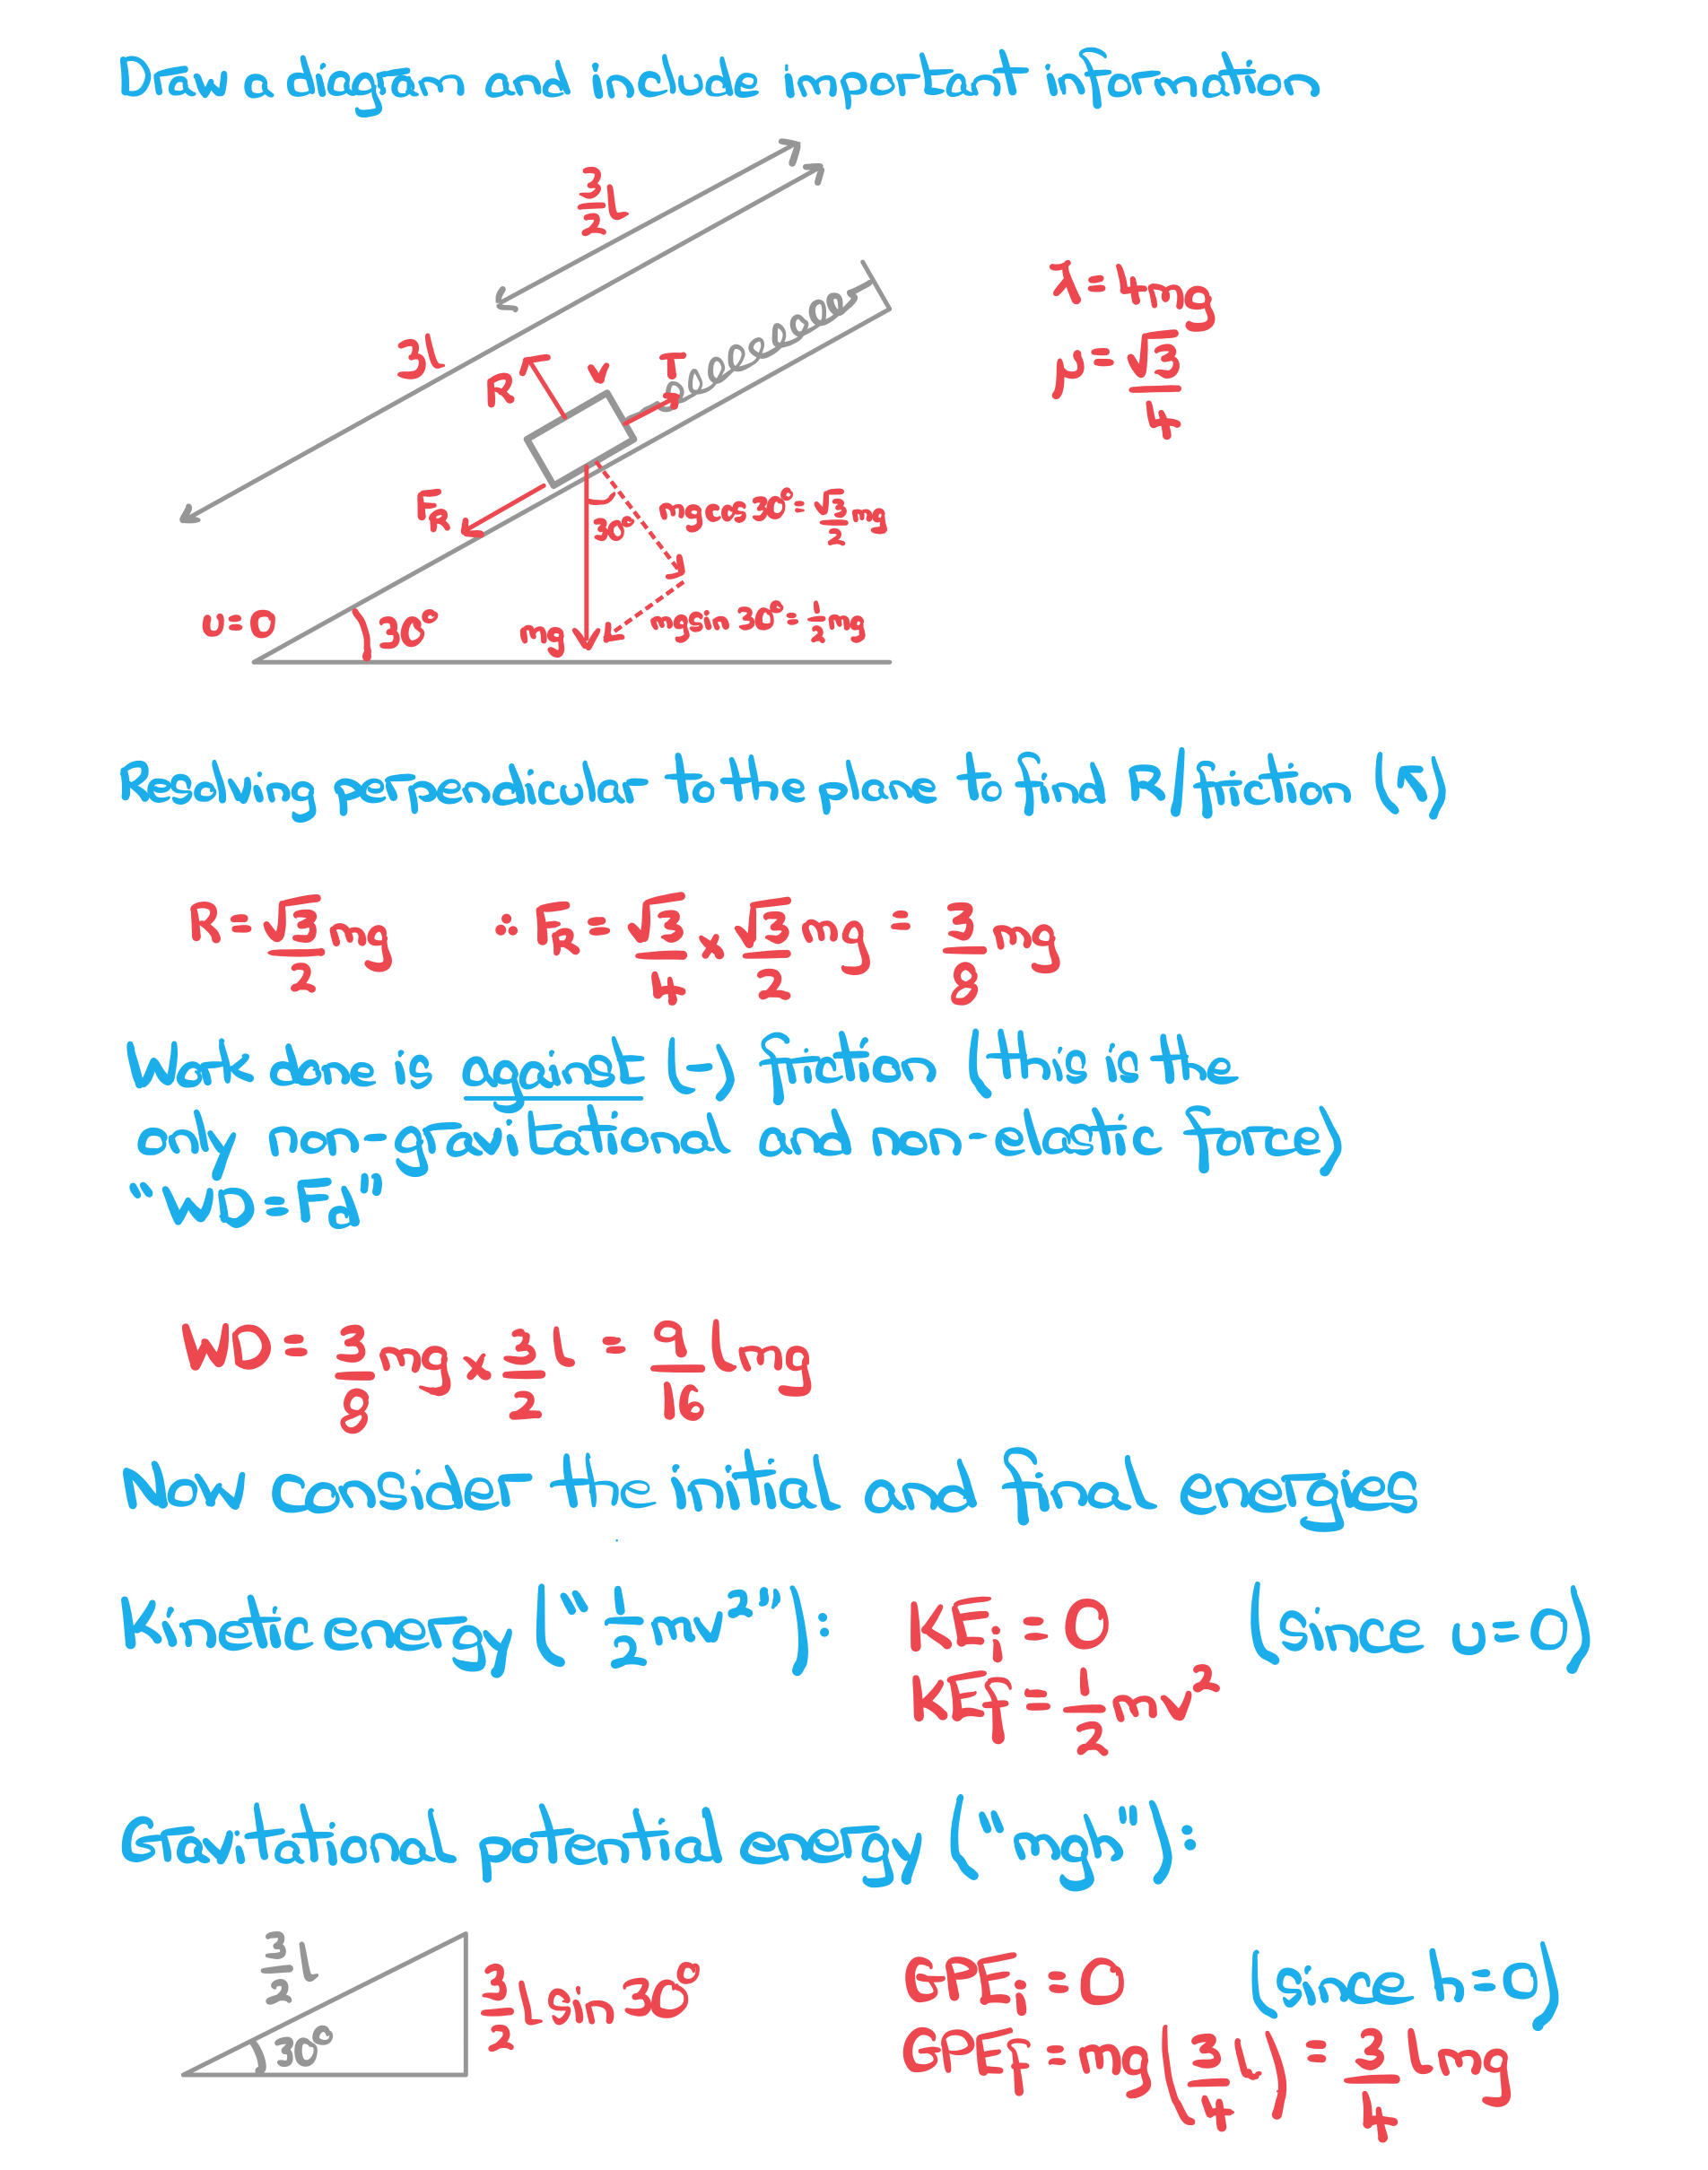 Draw a diagram and include important information
3/2 l
3l
λ = 4mg
μ = √3/4
R
v
T
F_R
30°
mg cos 30° = √3/2 mg
mg sin 30° = 1/2 mg
mg
u=0
30°
Resolving perpendicular to the plane to find R/friction (↖)
R = √3/2 mg ∴ F_R = √3/4 × √3/2 mg = 3/8 mg
Work done is against (-) friction (this is the
only non-gravitational and non-elastic force)
"WD=Fd"
WD = 3/8 mg × 3/2 l = 9/16 lmg
Now consider the initial and final energies
Kinetic energy ("1/2 mv²"): KE_i = 0 (since u=0)
KE_f = 1/2 mv²
Gravitational potential energy ("mgh"):
3/2 l
30°
3/2 l sin 30°
GPE_i = 0 (since h=0)
GPE_f = mg(3/4 l) = 3/4 lmg